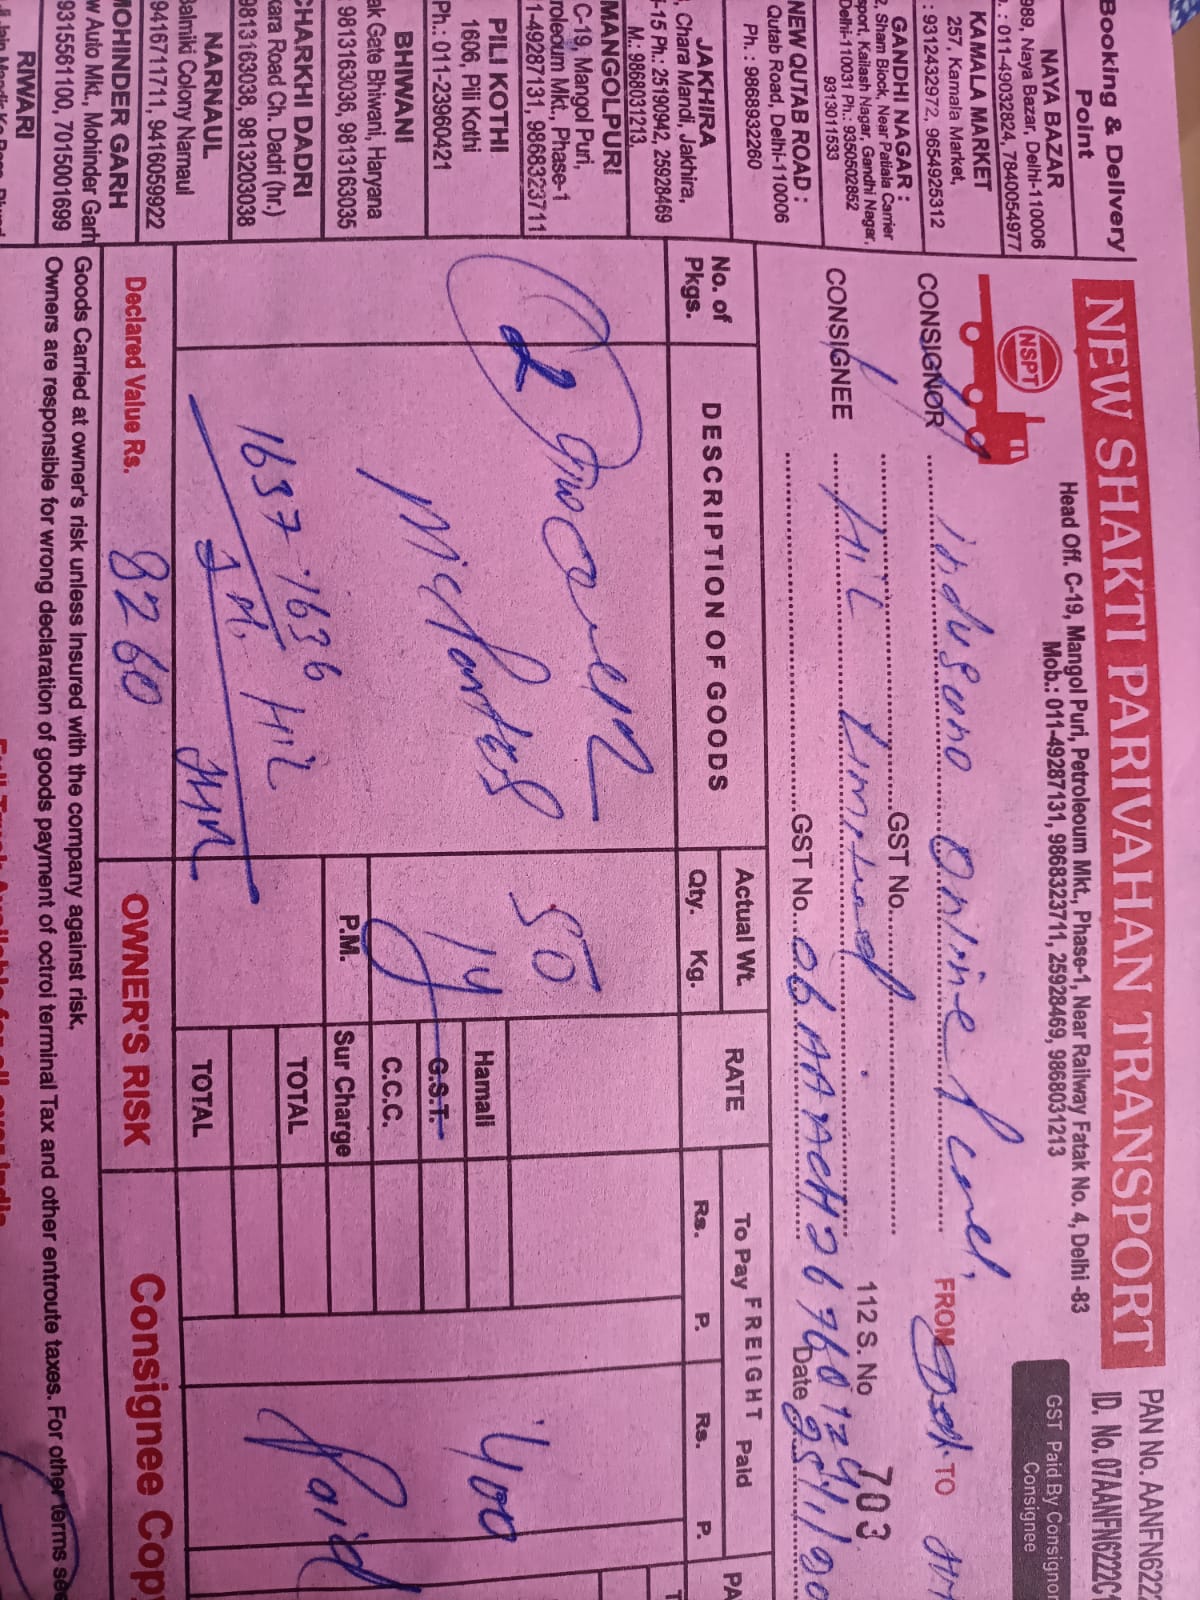 Booking & Delivery
Point
NAYA BAZAR
989, Naya Bazar, Delhi-110006
: 011-49032824, 7840054977
KAMALA MARKET
257, Kamala Market,
: 9312432972, 9654925312
GANDHI NAGAR :
2, Sham Block, Near Patiala Carrier
sport, Kailash Nagar, Gandhi Nagar,
Delhi-110031 Ph.: 9350502852
9313011533
NEW QUTAB ROAD :
Qutab Road, Delhi-110006
Ph. : 9868932260
JAKHIRA
, Chara Mandi, Jakhira,
-15 Ph.: 25190942, 25928469
M.: 9868031213,
MANGOLPURI
C-19, Mangol Puri,
roleoum Mkt., Phase-1
1-49287131, 9868323711
PILI KOTHI
1606, Pili Kothi
Ph.: 011-23960421
BHIWANI
ak Gate Bhiwani, Haryana
9813163036, 9813163035
CHARKHI DADRI
kara Road Ch. Dadri (hr.)
9813163038, 9813203038
NARNAUL
Balmiki Colony Narnaul
9416711711, 9416059922
MOHINDER GARH
w Auto Mkt., Mohinder Garh
9315561100, 7015001699
RIWARI
NEW SHAKTI PARIVAHAN TRANSPORT
Head Off. C-19, Mangol Puri, Petroleoum Mkt., Phase-1, Near Railway Fatak No. 4, Delhi -83
Mob.: 011-49287131, 9868323711, 25928469, 9868031213
PAN No. AANFN622
ID. No. 07AANFN6222C1
GST Paid By Consignor
Consignee
NSPT
CONSIGNOR FROM TO
GST No.
112 S. No 703
CONSIGNEE Hil Limited
GST No. 06AAACH267601Z9 Date
No. of Pkgs. DESCRIPTION OF GOODS Actual Wt Qty. Kg. RATE FREIGHT To Pay Rs. P. Paid Rs. P.
2 50
14 Hamali 400
G.S.T.
C.C.C.
P.M. Sur Charge
1637 . 1636 Hil TOTAL Paid
TOTAL
Declared Value Rs. 8260 OWNER'S RISK Consignee Copy
Goods Carried at owner's risk unless Insured with the company against risk.
Owners are responsible for wrong declaration of goods payment of octroi terminal Tax and other entroute taxes. For other terms see